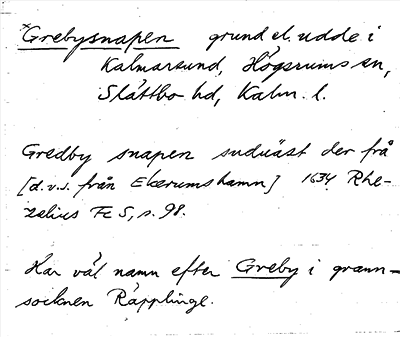 *Grebysnapen grund el. udde i
Kalmarsund, Högsrums sn,
Slättbo hd, Kalm. l.
Gredby snapen suduäst der frå
[d.v.s. från Ekerumshamn] 1634 Rhe-
zelius Fc 5, s. 98.
Har väl namn efter Greby i grann-
socknen Räpplinge.